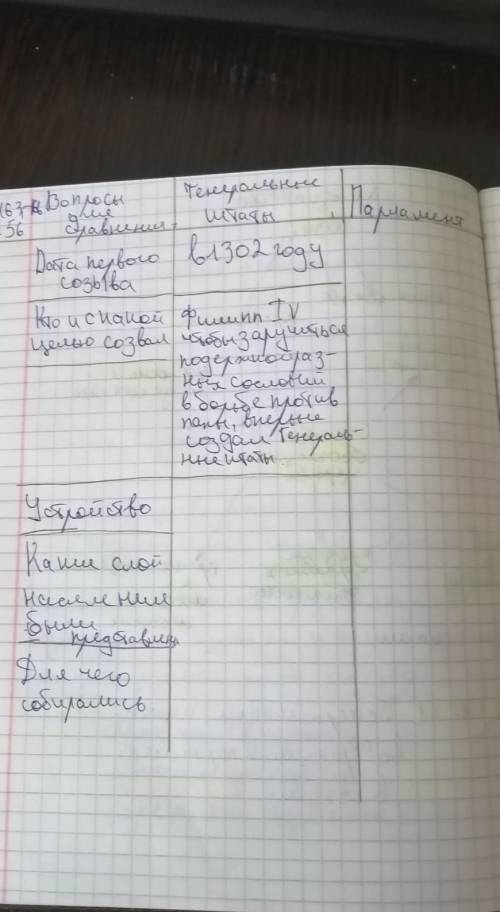 163
56
Вопросы
для
сравнения
Генеральные
штаты
Парламент
Дата первого
созыва
в 1302 году
Кто и с какой
целью созвал
Филипп IV
чтобы заручиться
подержкой раз-
ных сословий
в борьбе против
папы, впервые
создал Генераль-
ные штаты
Устройство
Какие слой
населения
были
представлены
Для чего
собирались